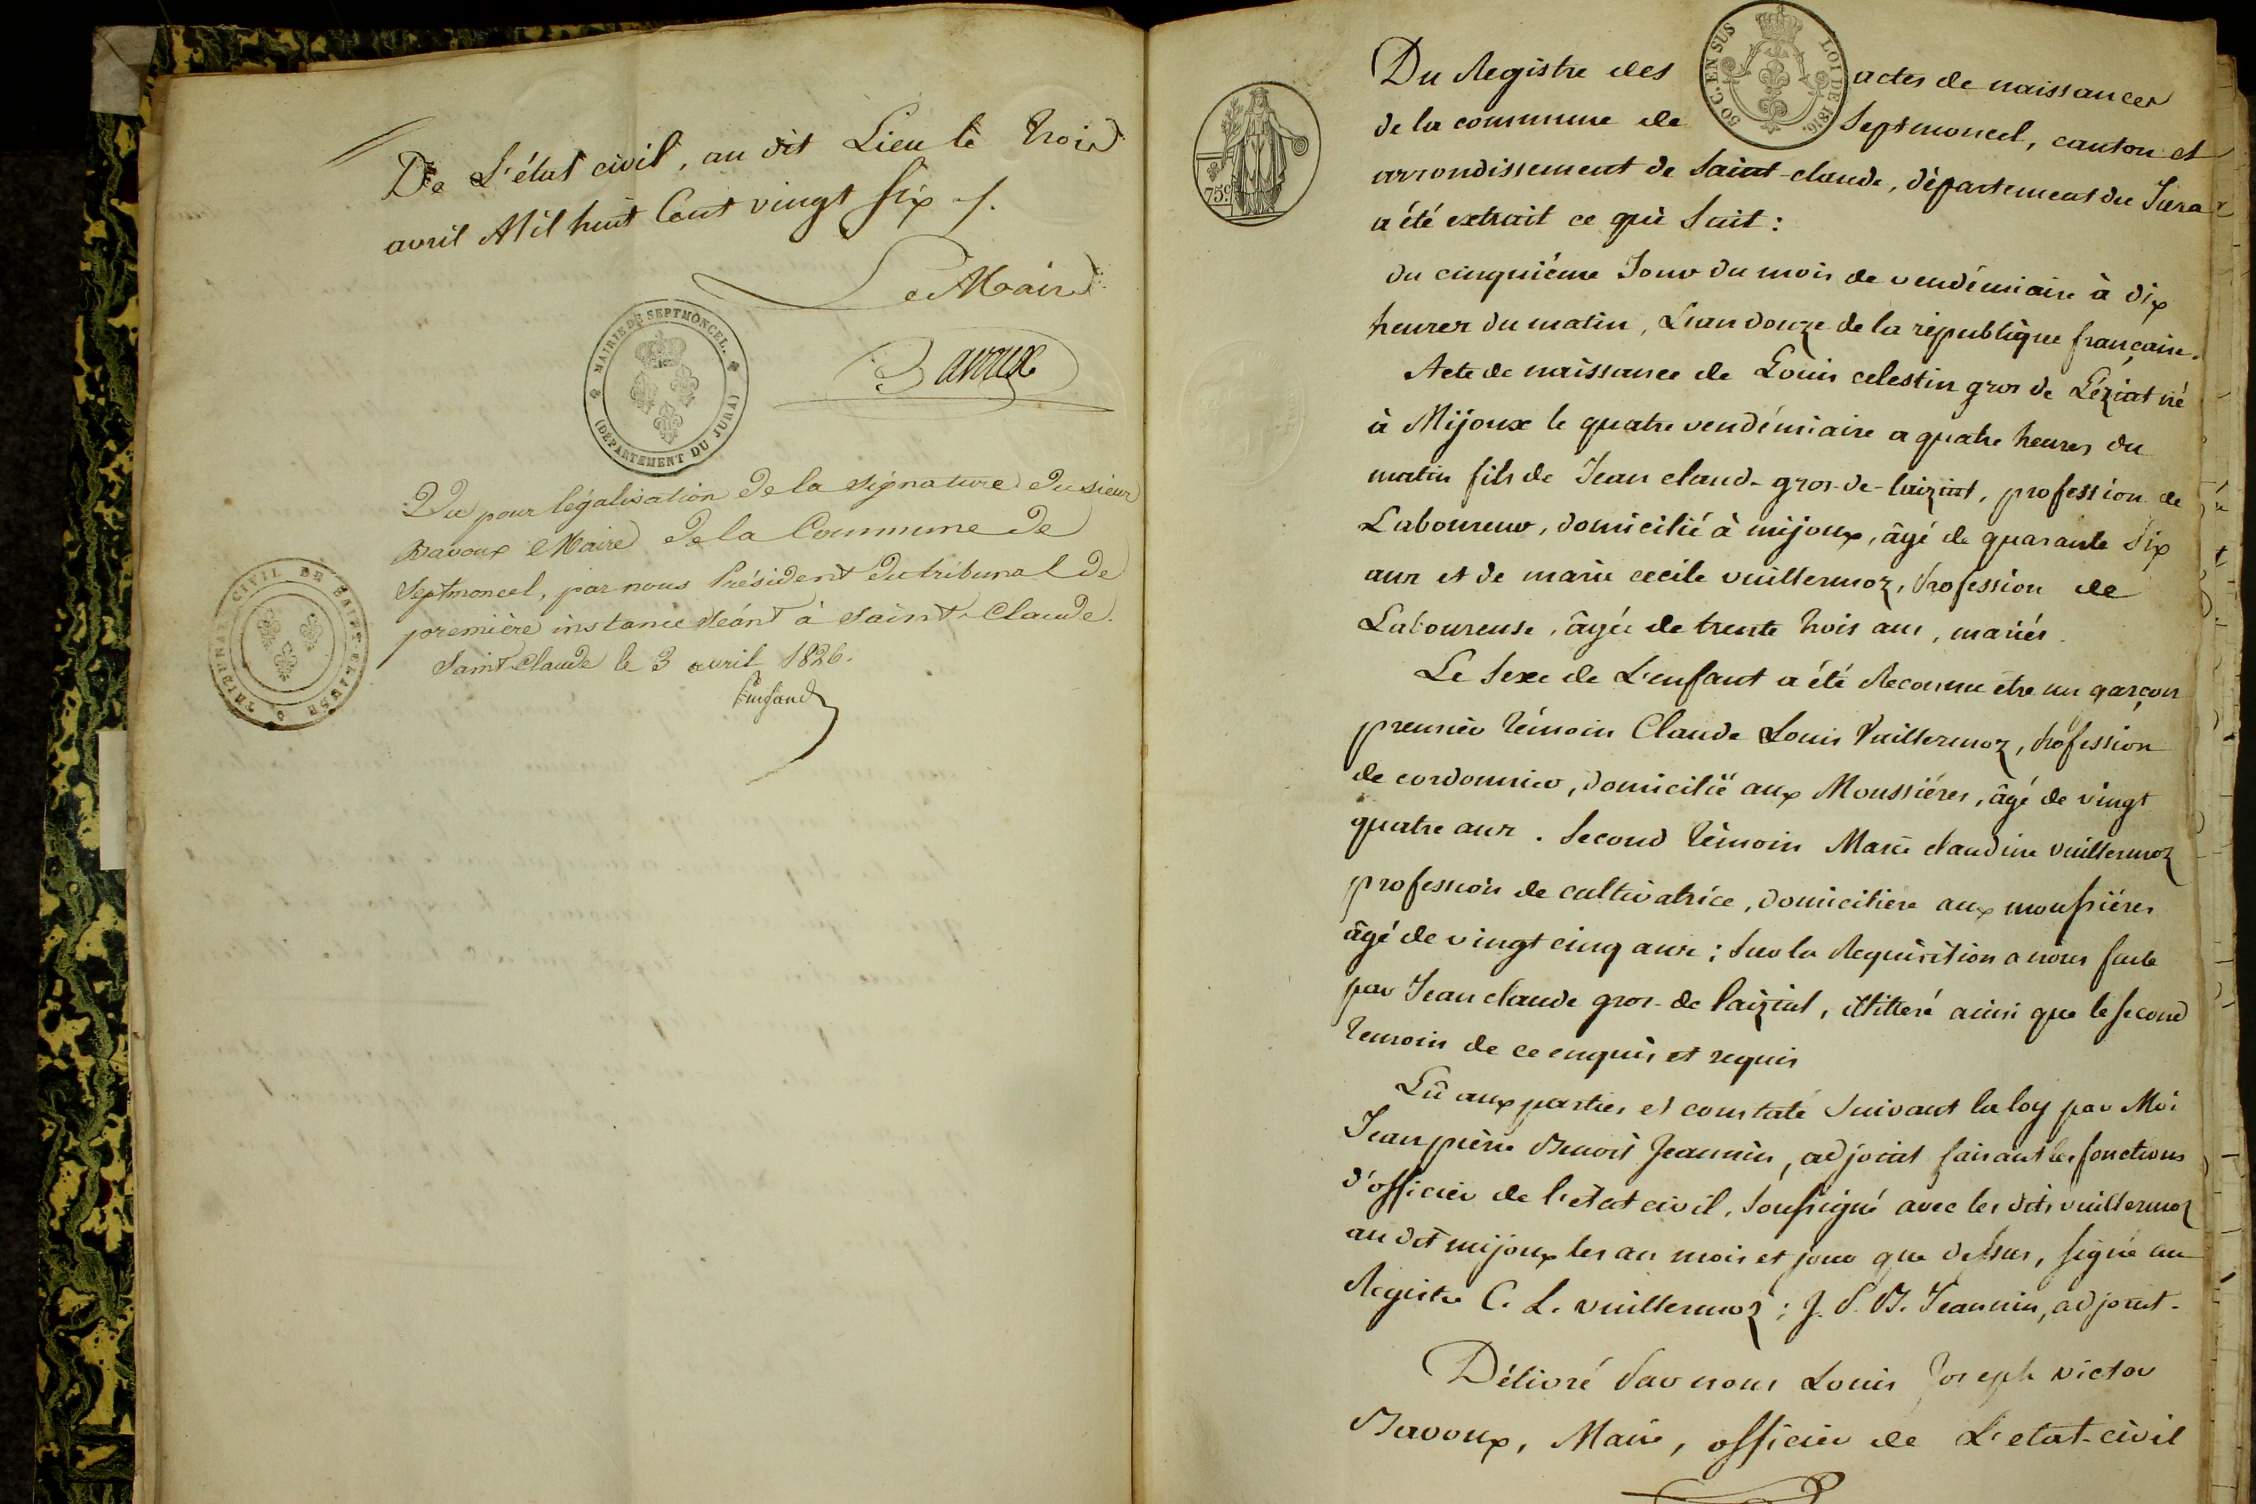 De L'état civil, au dit Lieu le trois
avril Mil huit Cent vingt six ./.
Le Maire
Bavoux
MAIRIE DE SEPTMONCEL.
(DÉPARTEMENT DU JURA)
Vu pour légalisation de la signature du sieur
Bavoux Maire de la Commune de
Septmoncel, par nous Président du tribunal de
première instance séant à Saint-Claude.
Saint-Claude le 3 avril 1826.
TRIBUNAL CIVIL DE SAINT-CLAUDE
75c.
50 C. EN SUS
LOI DE 1816.
Du Registre des actes de naissances
de la commune de Septmoncel, canton et
arrondissement de Saint-claude, département du Jura
a été extrait ce qui suit :
du cinquiéme Jour du mois de vendémiaire à dix
heures du matin, L'an douze de la république française.
Acte de naissance de Louis celestin gros de Léziat né
à Mijoux le quatre vendémiaire a quatre heures du
matin fils de Jean claude gros-de-laiziat, profession de
Laboureur, domicilié à mijoux, âgé de quarante six
ans et de marie cecile vuillermoz, profession de
Laboureuse, âgée de trente trois ans, mariés.
Le sexe de L'enfant a été Reconnu etre un garçon
premier témoin Claude Louis Vuillermoz, profession
de cordonnier, domicilié aux Moussiéres, âgé de vingt
quatre ans. Second témoin Marie claudine vuillermoz
profession de cultivatrice, domiciliere aux moussiéres
âgé de vingt cinq ans ; sur la Requisition a nous faite
par Jean claude gros-de laiziat, illitteré ainsi que le second
temoin de ce enquis et requis
Lû aux parties et constaté suivant la loy par Moi
Jean pierre Benoit Jeannin, adjoint faisant les fonctions
d'officier de l'etat civil, soussigné avec les dits vuillermoz
au dit mijoux les an mois et jour que dessus, signé au
Registre C. L. vuillermoz ; J. P. B. Jeannin, adjoint.
Délivré par nous Louis Joseph victor
Bavoux, Maire, officier de L'etat-civil